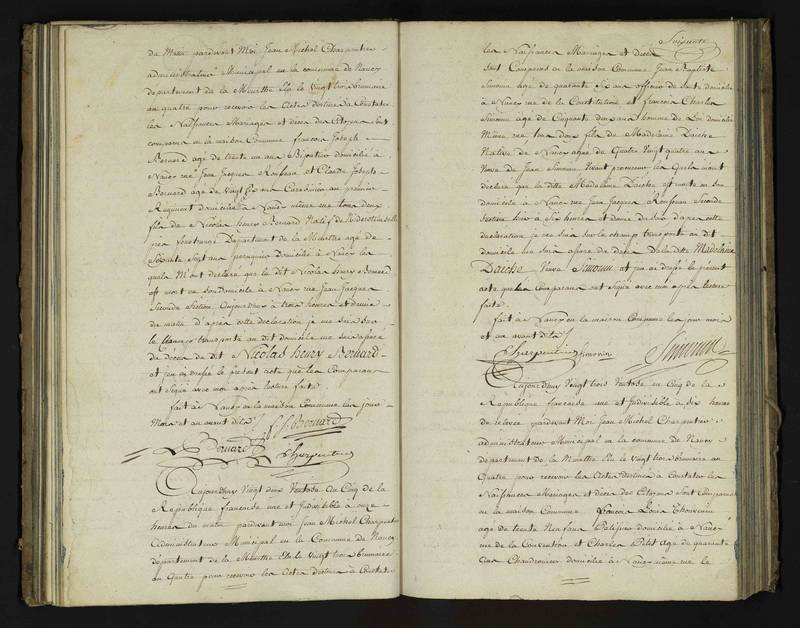 de Matin pardevant Moi Jean Michel Charpentier
administrateur Municipal en la commune de Nancy
département de la Meurthe Elu le vingt trois brumaire
an quatre pour recevoir les Actes destinés à Constater
les Naissances Mariages et décès des Citoyens sont
comparus en la maison Commune françois Joseph
Bernard agé de trente un ans Bijoutier domicilié à
Nancy rue Jean Jacques Rousseau et Claude Joseph
Bernard agé de vingt ans Carabinier au premier
Regiment domicilié à même rue tous deux
fils de Nicolas henry Bernard Natif de
près fenetrange Département de la Meurthe agé de
Soixante Sept ans perruquier domicilié à Nancy les
quels M'ont déclaré que le dit Nicolas henry Bernard
est mort en son domicile à Nancy rue Jean Jacques
Seconde Section Aujourd'huy à trois heures et demie
du matin d'après cette déclaration je me suis sur
le champ transporté au dit domicile me suis assuré
du décès du dit Nicolas henry Bernard
et j'en ai dressé le présent acte que les Comparans
ont Signé avec moi après lecture faite
fait à Nancy en la maison commune les jour
Mois et an avant dits
Bernard
Bernard Charpentier
Aujourd'huy Vingt deux Ventose an Cinq de la
République française une et Indivisible à onze
heures du matin pardevant moi Jean Michel Charpentier
administrateur Municipal en la Commune de Nancy
département de la Meurthe Elu le vingt trois brumaire
an Quatre pour recevoir les Actes destinés à Constater
Soixante
les Naissances Mariages et décès
sont Comparus en la maison Commune Jean Baptiste
Simonin agé de quarante six ans officier de Santé domicilié
à Nancy rue de la Constitution et françois Charles
Simonin agé de Cinquante deux ans homme de Loi domicilié
Même rue tous deux fils de Madelaine Daiche
Native de Nancy agée de Quatre Vingt quatre ans
Veuve de Jean Simonin Vivant procureur les quels m'ont
declaré que la ditte Madelaine Daiche est morte en son
domicile à Nancy rue Jean Jacques Rousseau Seconde
Section hier à Six heures et demie du soir d'après cette
déclaration je me suis sur le champ transporté au dit
domicile me suis assuré du décès de la ditte Madelaine
Daiche Veuve Simonin et j'en ai dressé le présent
acte que les Comparans ont Signé avec moi après lecture
faite
fait à Nancy en la maison Commune les jour mois
et an avant dits
Charpentier Simonin Simonin
Aujourd'huy Vingt trois Ventose an Cinq de la
République française une et Indivisible à dix heures
de relevée pardevant Moi Jean Michel Charpentier
administrateur Municipal en la commune de Nancy
département de la Meurthe Elu le vingt trois brumaire an
Quatre pour recevoir les Actes destinés à Constater les
Naissances Mariages et décès des Citoyens sont Comparus
en la maison Commune françois Louis Thouvenin
agé de trente Neuf ans Patissier domicilié à Nancy
rue de la Convention et Charles Petit agé de quarante
cinq Chaudronnier domicilié à Nancy même rue le